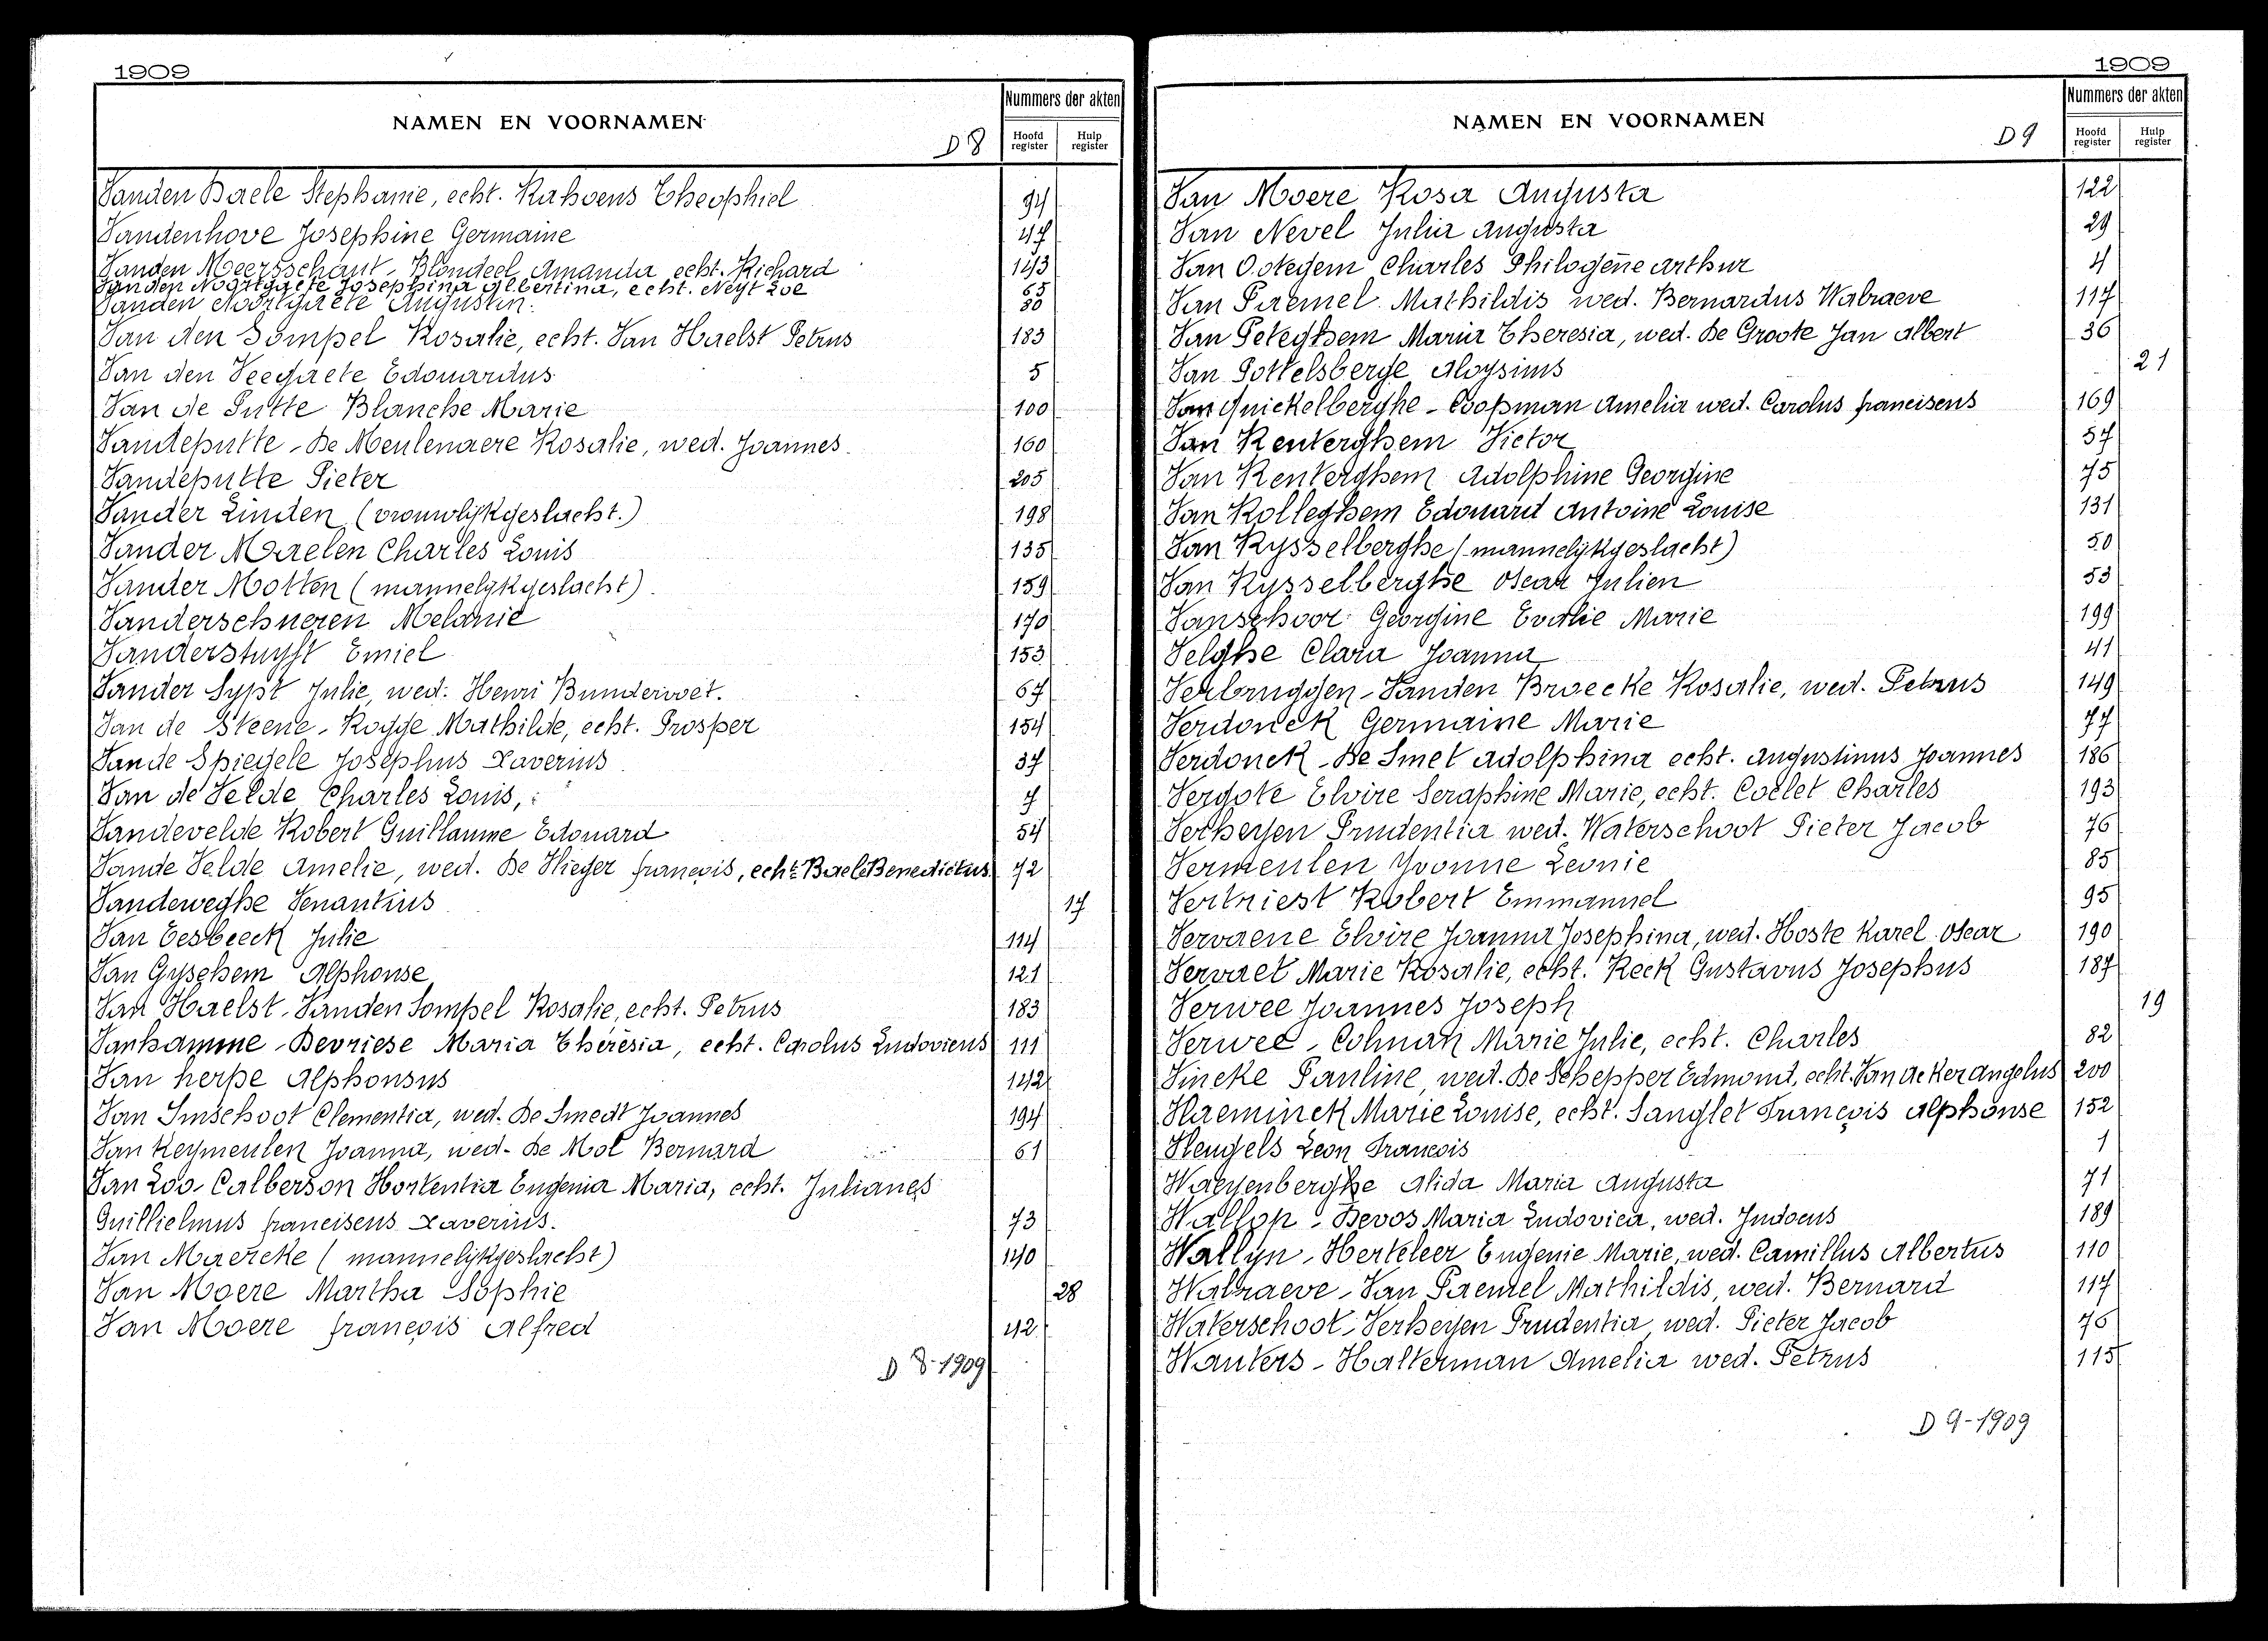 1909
NAMEN EN VOORNAMEN
D 8
Nummers der akten
Hoofd register
Hulp register
Vanden Baele Stephanie, echt. Rahoens Theophiel 94
Vandenhove Josephine Germaine 47
Vanden Meersschaut - Blondeel Amanda echt. Richard 143
Vanden Noortgaete Josephina Albertina, echt. Neyt Zoë 65
Vanden Noortgaete Augustin. 80
Van den Sompel Rosalie, echt. Van Haelst Petrus 183
Van den Veegaete Edouardus 5
Van de Putte Blanche Marie 100
Vandeputte - De Meulenaere Rosalie, wed. Joannes 160
Vandeputte Pieter 205
Vander Linden (vrouwlijkgeslacht.) 198
Vander Maelen Charles Louis 135
Vander Motten (mannelijkgeslacht) 159
Vanderschueren Melanie 170
Vanderstuyft Emiel 153
Vander Sypt Julie, wed. Henri Bundervoet. 67
Van de Steene - Rogge Mathilde, echt. Prosper 154
Van de Spiegele Josephus Xaverius 37
Van de Velde Charles Louis, 7
Vandevelde Robert Guillaume Edouard 54
Vande Velde Amelie, wed. De Vlieger françois, echt. Baele Benedictus 72
Vandeweghe Venantius 17
Van Eesbeeck Julie 114
Van Gyseghem Alphonse 121
Van Haelst - Vanden Sompel Rosalie, echt. Petrus 183
Vanhamme - Devriese Maria Thérèsia, echt. Carolus Ludovicus 111
Van herpe Alphonsus 142
Van Imschoot Clementia, wed. De Smedt Joannes 194
Van Keymeulen Joanna, wed - De Mol Bernard 61
Van Loo - Calberson Hortentia Eugenia Maria, echt. Julianes
Guillielmus franciscus Xaverius. 73
Van Maercke (mannelijkgeslacht) 140
Van Moere Martha Sophie 28
Van Moere françois Alfred 42
D 8-1909
1909
NAMEN EN VOORNAMEN
D 9
Nummers der akten
Hoofd register
Hulp register
Van Moere Rosa Augusta 122
Van Nevel Julia Augusta 29
Van Ootegem Charles Philogène Arthur 4
Van Paemel Mathildis wed. Bernardus Walraeve 117
Van Peteghem Maria Theresia, wed. De Groote Jan Albert 36
Van Pottelsberge Aloysius 21
Van Quickelberghe - Coopman Amelia wed. Carolus franciscus 169
Van Renterghem Victor 57
Van Renterghem Adolphine Georgine 75
Van Rolleghem Edouard Antoine Louise 131
Van Rysselberghe (mannelijkgeslacht) 50
Van Rysselberghe Oscar Julien 53
Vanschoor Georgine Evalie Marie 199
Velghe Clara Joanna 41
Verbruggen - Vanden Broecke Rosalie, wed. Petrus 149
Verdonck Germaine Marie 77
Verdonck - De Smet Adolphina echt. Augustinus Joannes 186
Vergote Elvire Seraphine Marie, echt. Coelet Charles 193
Verheyen Prudentia wed. Waterschoot Pieter Jacob 76
Vermeulen Yvonne Leonie 85
Vertriest Robert Emmanuel 95
Vervaene Elvire Joanna Josephina, wed. Hoste Karel Oscar 190
Vervaet Marie Rosalie, echt. Reck Gustavus Josephus 187
Verwee Joannes Joseph 19
Verwee - Colman Marie Julie, echt. Charles 82
Vincke Pauline, wed. De Schepper Edmond, echt. Van Acker Angelus 200
Vlaeminck Marie Louise, echt. Langlet François Alphonse 152
Vleugels Leon Francois 1
Waeyenberghe Alida Maria Augusta 71
Wallop - Devos Maria Ludovica, wed. Judocus 189
Wallyn - Herteleer Eugenie Marie, wed. Camillus Albertus 110
Walraeve - Van Paemel Mathildis, wed. Bernard 117
Waterschoot - Verheyen Prudentia wed. Pieter Jacob 76
Wauters - Halterman Amelia wed. Petrus 115
D 9-1909